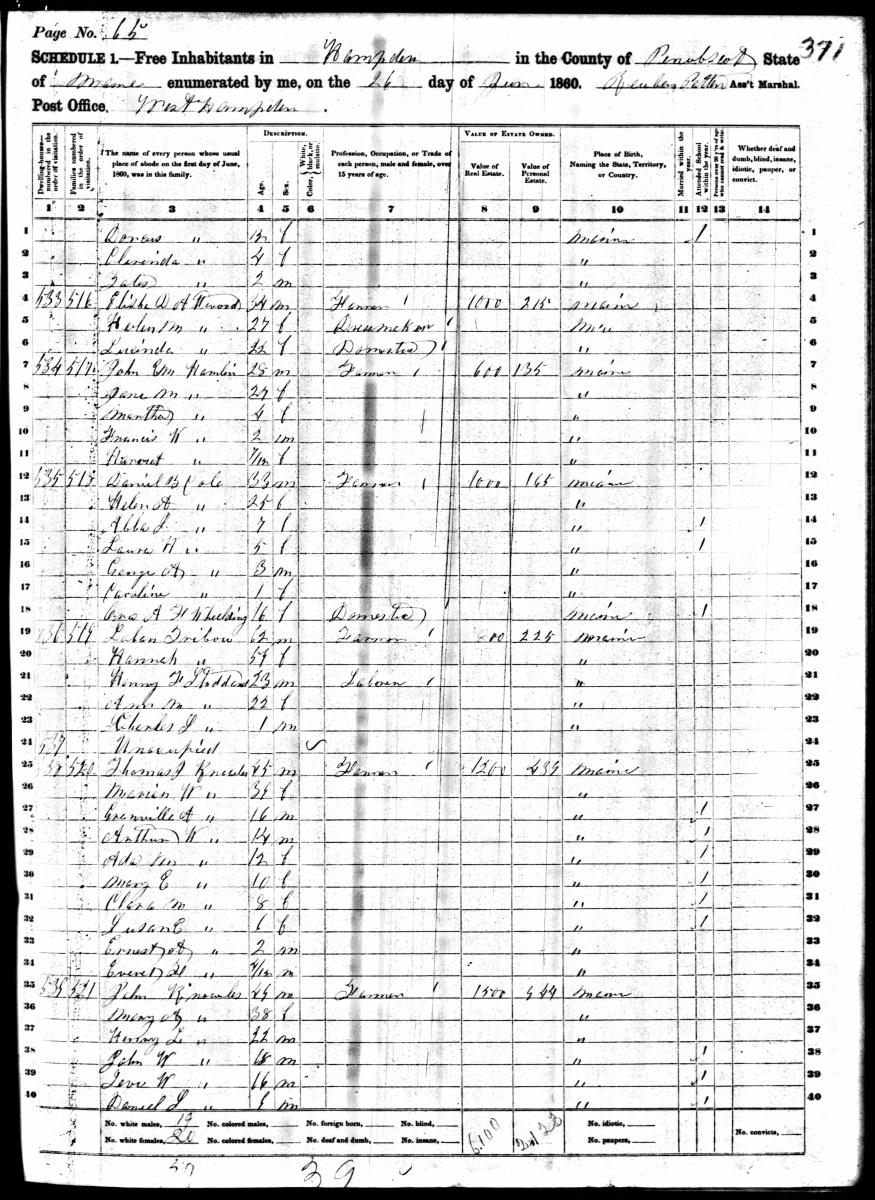 Page No. 65
371
SCHEDULE 1.—Free Inhabitants in Hampden in the County of Penobscot State
of Maine enumerated by me, on the 26 day of June 1860. Reuben Patten Ass't Marshal.
Post Office. West Hampden.
Dwelling-houses—numbered in the order of visitation.
Families numbered in the order of visitation.
The name of every person whose usual place of abode on the first day of June, 1860, was in this family.
DESCRIPTION.
Age.
Sex.
Color, { White, black, or mulatto.
Profession, Occupation, or Trade of each person, male and female, over 15 years of age.
VALUE OF ESTATE OWNED.
Value of Real Estate.
Value of Personal Estate.
Place of Birth, Naming the State, Territory, or Country.
Married within the year.
Attended School within the year.
Persons over 20 y'rs of age who cannot read & write.
Whether deaf and dumb, blind, insane, idiotic, pauper, or convict.
1 2 3 4 5 6 7 8 9 10 11 12 13 14
1 Dorcus " f Maine / 1
2 Clarinda " 4 f " 2
3 " 2 m " 3
4 533 516 Elisha D Attwood 34 m Farmer 1000 215 Maine 4
5 Helen M " 27 f Dressmaker 5
6 Lucinda " 22 f Domestic " 6
7 534 517 John E M Hamlin 28 m Farmer 600 135 Maine 7
8 Jane M " 27 f " 8
9 Martha " 4 f " 9
10 Francis W " 2 m " 10
11 Harriet " 7/12 f " 11
12 535 518 Daniel B Cole 33 m Farmer 1000 165 Maine 12
13 Helen A " 25 f " 13
14 Abba L " 7 f " / 14
15 Laura A " 5 f " / 15
16 George A " 3 m " 16
17 Caroline " 1 f " 17
18 A F Wheelding 16 f Domestic Maine / 18
19 536 519 Laban Tribou 62 m Farmer 800 225 Maine 19
20 Hannah " 59 f " 20
21 Henry F Stoddard 23 m Laborer " 21
22 Ann M " 22 f " 22
23 Charles L " 1 m " 23
24 537 Unoccupied 24
25 538 520 Thomas J Knowles 45 m Farmer 1200 439 Maine 25
26 Marien W " 39 f " 26
27 Granville A " 16 m " / 27
28 Arthur W " 14 m " / 28
29 Ada M " 12 f " / 29
30 Mary E " 10 f " / 30
31 Clara M " 8 f " / 31
32 Susan E " 6 f " / 32
33 Ernest A " 2 m " 33
34 Everet H " 7/12 m " 34
35 539 521 John Knowles 45 m Farmer 1500 544 Maine 35
36 Mary A " 38 f " 36
37 Henry L " 22 m " 37
38 John W " 18 m " / 38
39 Levi W " 16 m " / 39
40 Daniel L " m " / 40
No. white males, 19 No. colored males, No. foreign born, No. blind, 6100 No. idiotic,
No. white females, 20 No. colored females, No. deaf and dumb, No. insane, No. paupers, No. convicts,
39